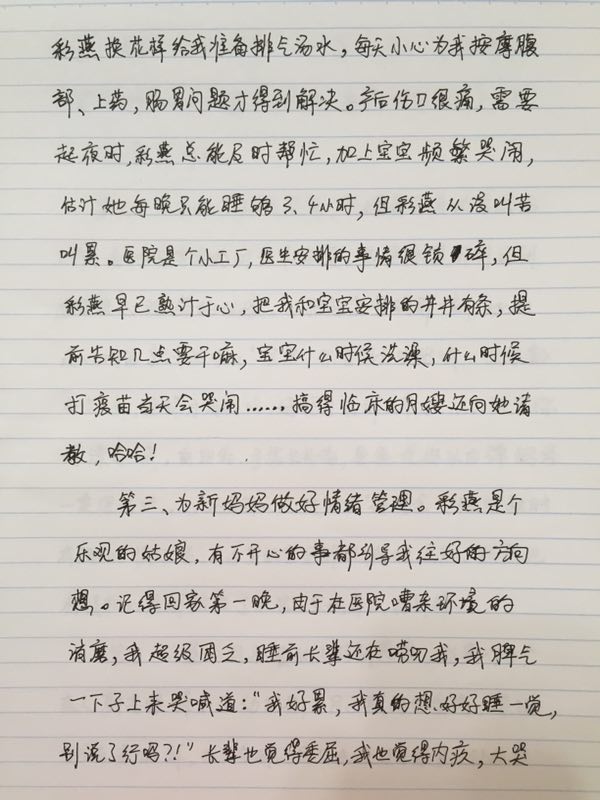 彩燕换花样给我准备排气汤水，每天小心为我按摩腹
部、上药，肠胃问题才得到解决。产后伤口很痛，需要
起夜时，彩燕总能及时帮忙，加上宝宝频繁哭闹，
估计她每晚只能睡够3、4小时，但彩燕从没叫苦
叫累。医院是个小工厂，医生安排的事情很锁碎，但
彩燕早已熟计于心，把我和宝宝安排的井井有条，提
前告知几点要干嘛，宝宝什么时候洗澡，什么时候
打疫苗当天会哭闹……搞得临床的月嫂还向她请
教，哈哈！
第三、为新妈妈做好情绪管理。彩燕是个
乐观的姑娘，有不开心的事都引导我往好的方向
想。记得回家第一晚，由于在医院嘈杂环境的
消磨，我超级困乏，睡前长辈还在唠叨我，我脾气
一下子上来哭喊道：“我好累，我真的想好好睡一觉，
别说了行吗？！”长辈也觉得委屈，我也觉得内疚，大哭